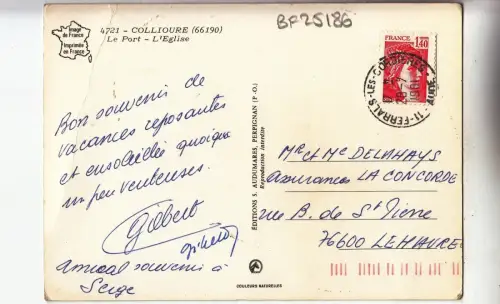 Image
de France
Imprimée
en France
4721 - COLLIOURE (66190)
Le Port - L'Eglise
BF25186
FRANCE
1,40
11-FERRALS-LES-CORBIERES
AUDE
Bon souvenir de
vacances reposantes
et ensoleillée quoique
un peu venteuses.
Gilbert
Amical souvenir à
Serge
EDITIONS S. AUDUMARES, PERPIGNAN (P.-O.)
Reproduction interdite
Mr et Me DELAHAYS
Assurances LA CONCORDE
rue B. de St Pierre
76600 LEHAVRE
COULEURS NATURELLES